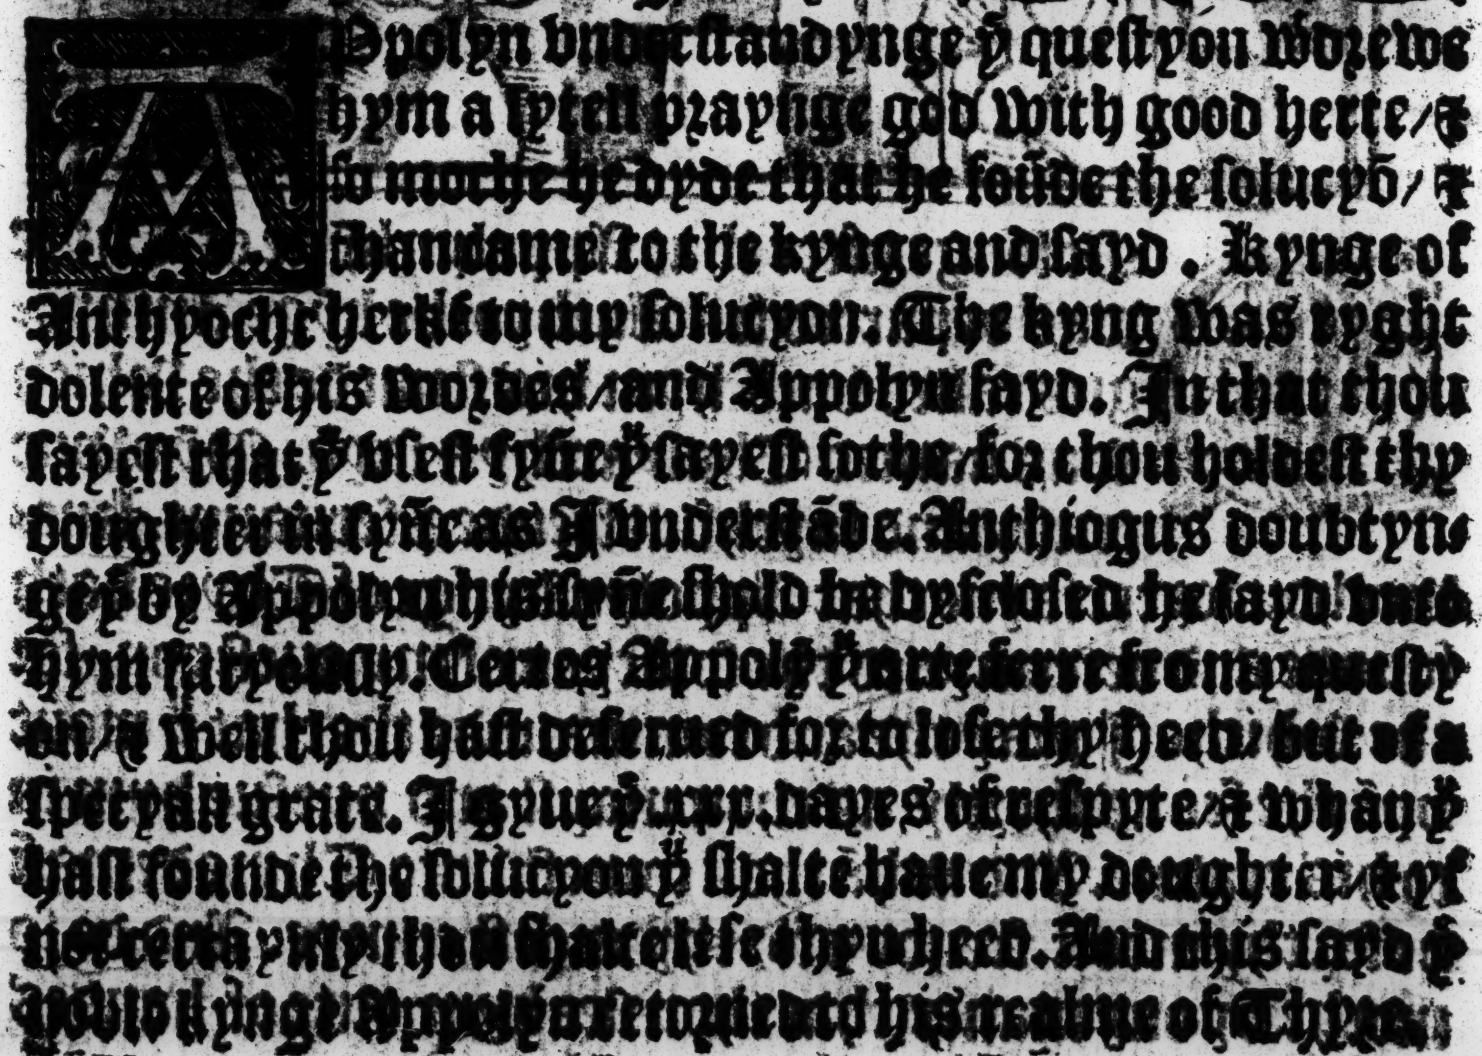 APpolyn vnderstandynge ẏ questyon wdrewe
hym a lytell prayinge god with good herte/ &
so moche he dyde that he foūde the solucyō/ &
than came to the kynge and sayd. Kynge of
Anthyoche herkē to my solucyon. The kyng was ryght
dolente of his wordes/ and Appolyn sayd. In that thou
sayest that yͧ vsest syn̄e yͧ sayest sothe/ for thou holdest thy
doughter in syn̄e as I vnderstāde. Anthiogus doubtyn
ge ẏ by Appolyn his syn̄e shold be dysclosed he sayd vnto
hym furyously. Certes Appolȳ yͧ arte ferre fro my questy
on/ & well thou hast deserued for to lose thy heed/ but of a
specyall grace. I gyue yͤ .xxx. dayes of respyte/ & whan yͧ
hast founde the solucyon yͧ shalte haue my doughter/ & yf
not certaynly thou shalte lese thyn heed. And this sayd ẏ
noble kynge Appolyn retorned to his realme of Thyre.